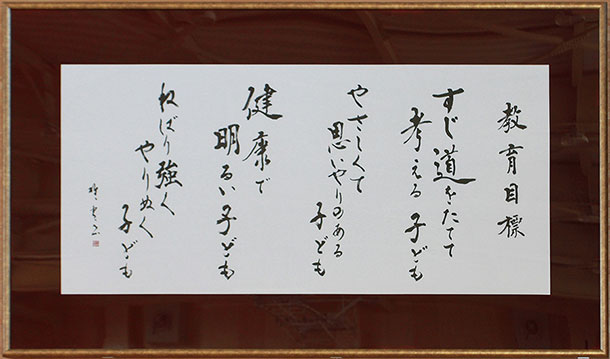 教育目標
すじ道をたてて
考える子ども
やさしくて
思いやりのある
子ども
健康で
明るい子ども
ねばり強く
やりぬく
子ども